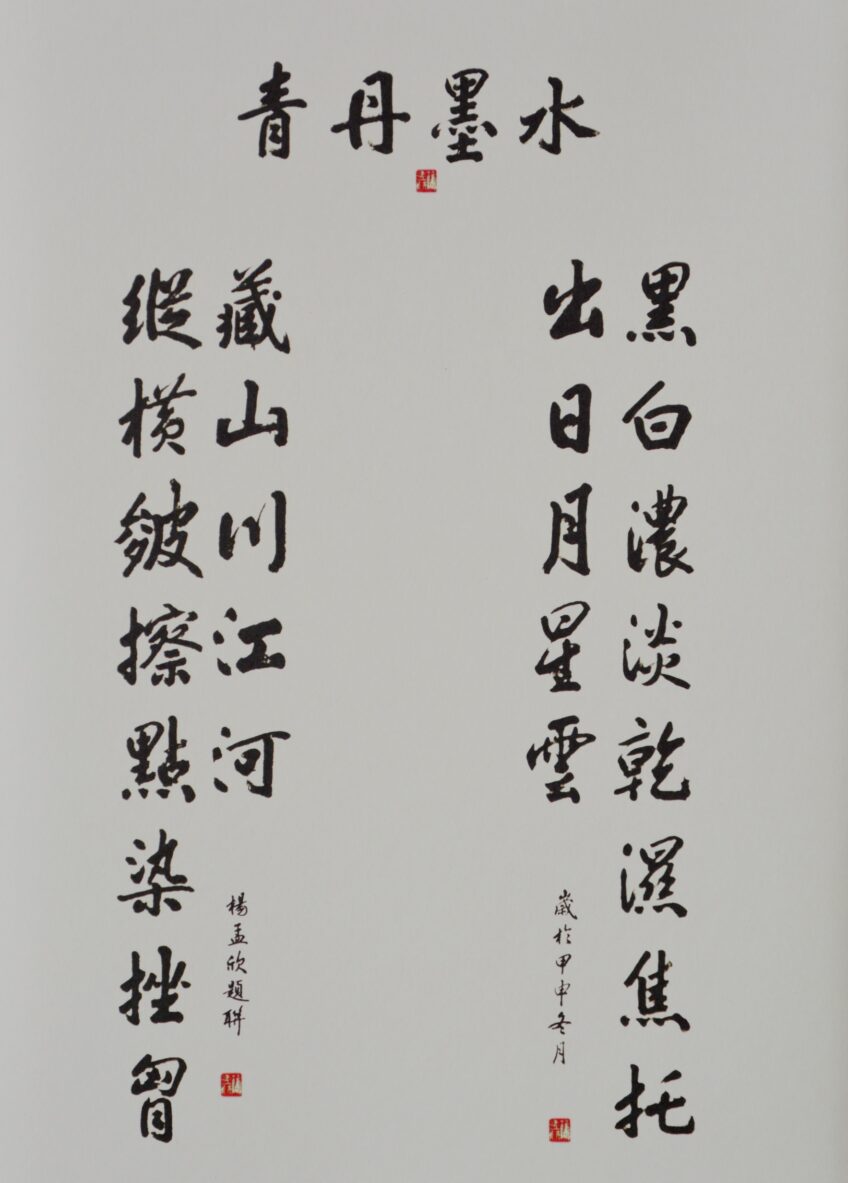 水墨丹青
黑白濃淡乾濕焦托
出日月星雲
歲於甲申冬月
縱橫皴擦點染挫胷
藏山川江河
楊孟欣題聯